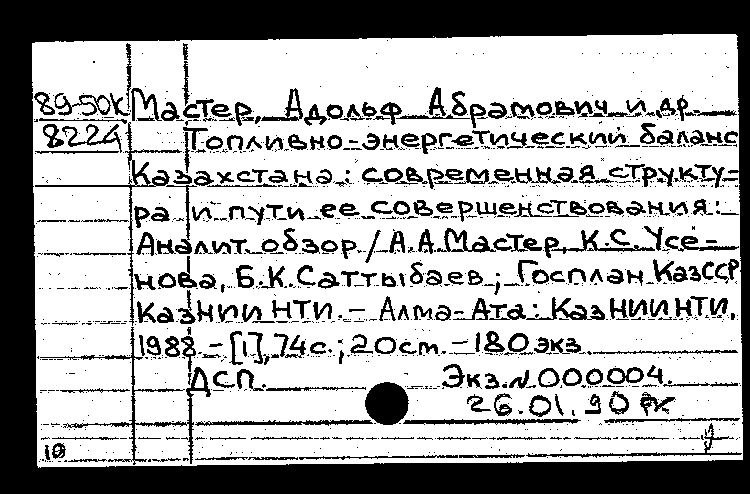 89-50к Мастер, Адольф Абрамович и др.
8224 Топливно-энергетический баланс
Казахстана: современная структу-
ра и пути ее совершенствования:
Аналит. обзор / А.А.Мастер, К.С.Усе-
нова, Б.К.Саттыбаев; Госплан КазССР
КазНИИНТИ. – Алма-Ата: КазНИИНТИ,
1988. – [1], 74с.; 20см. – 180экз.
ДСП. Экз.N.000004.
26.01.90
10